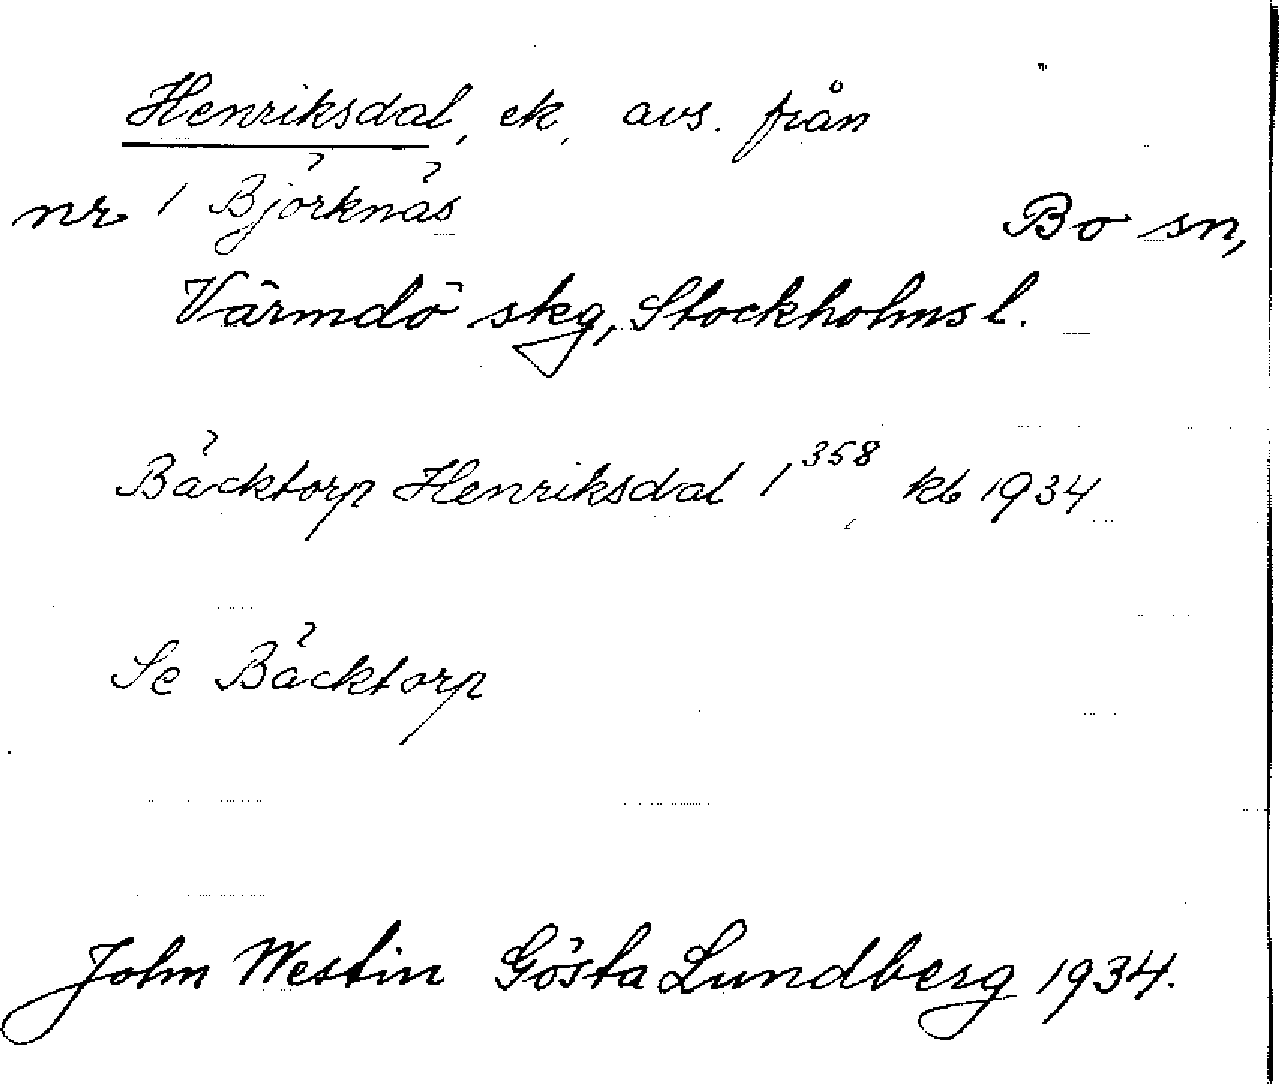 Henriksdal, ek, avs. från
nr 1 Björknäs
Bo sn,
Värmdö skg, Stockholms l.
Bäcktorp Henriksdal 1³⁵⁸ kb 1934
Se Bäcktorp
John Westin Gösta Lundberg 1934.